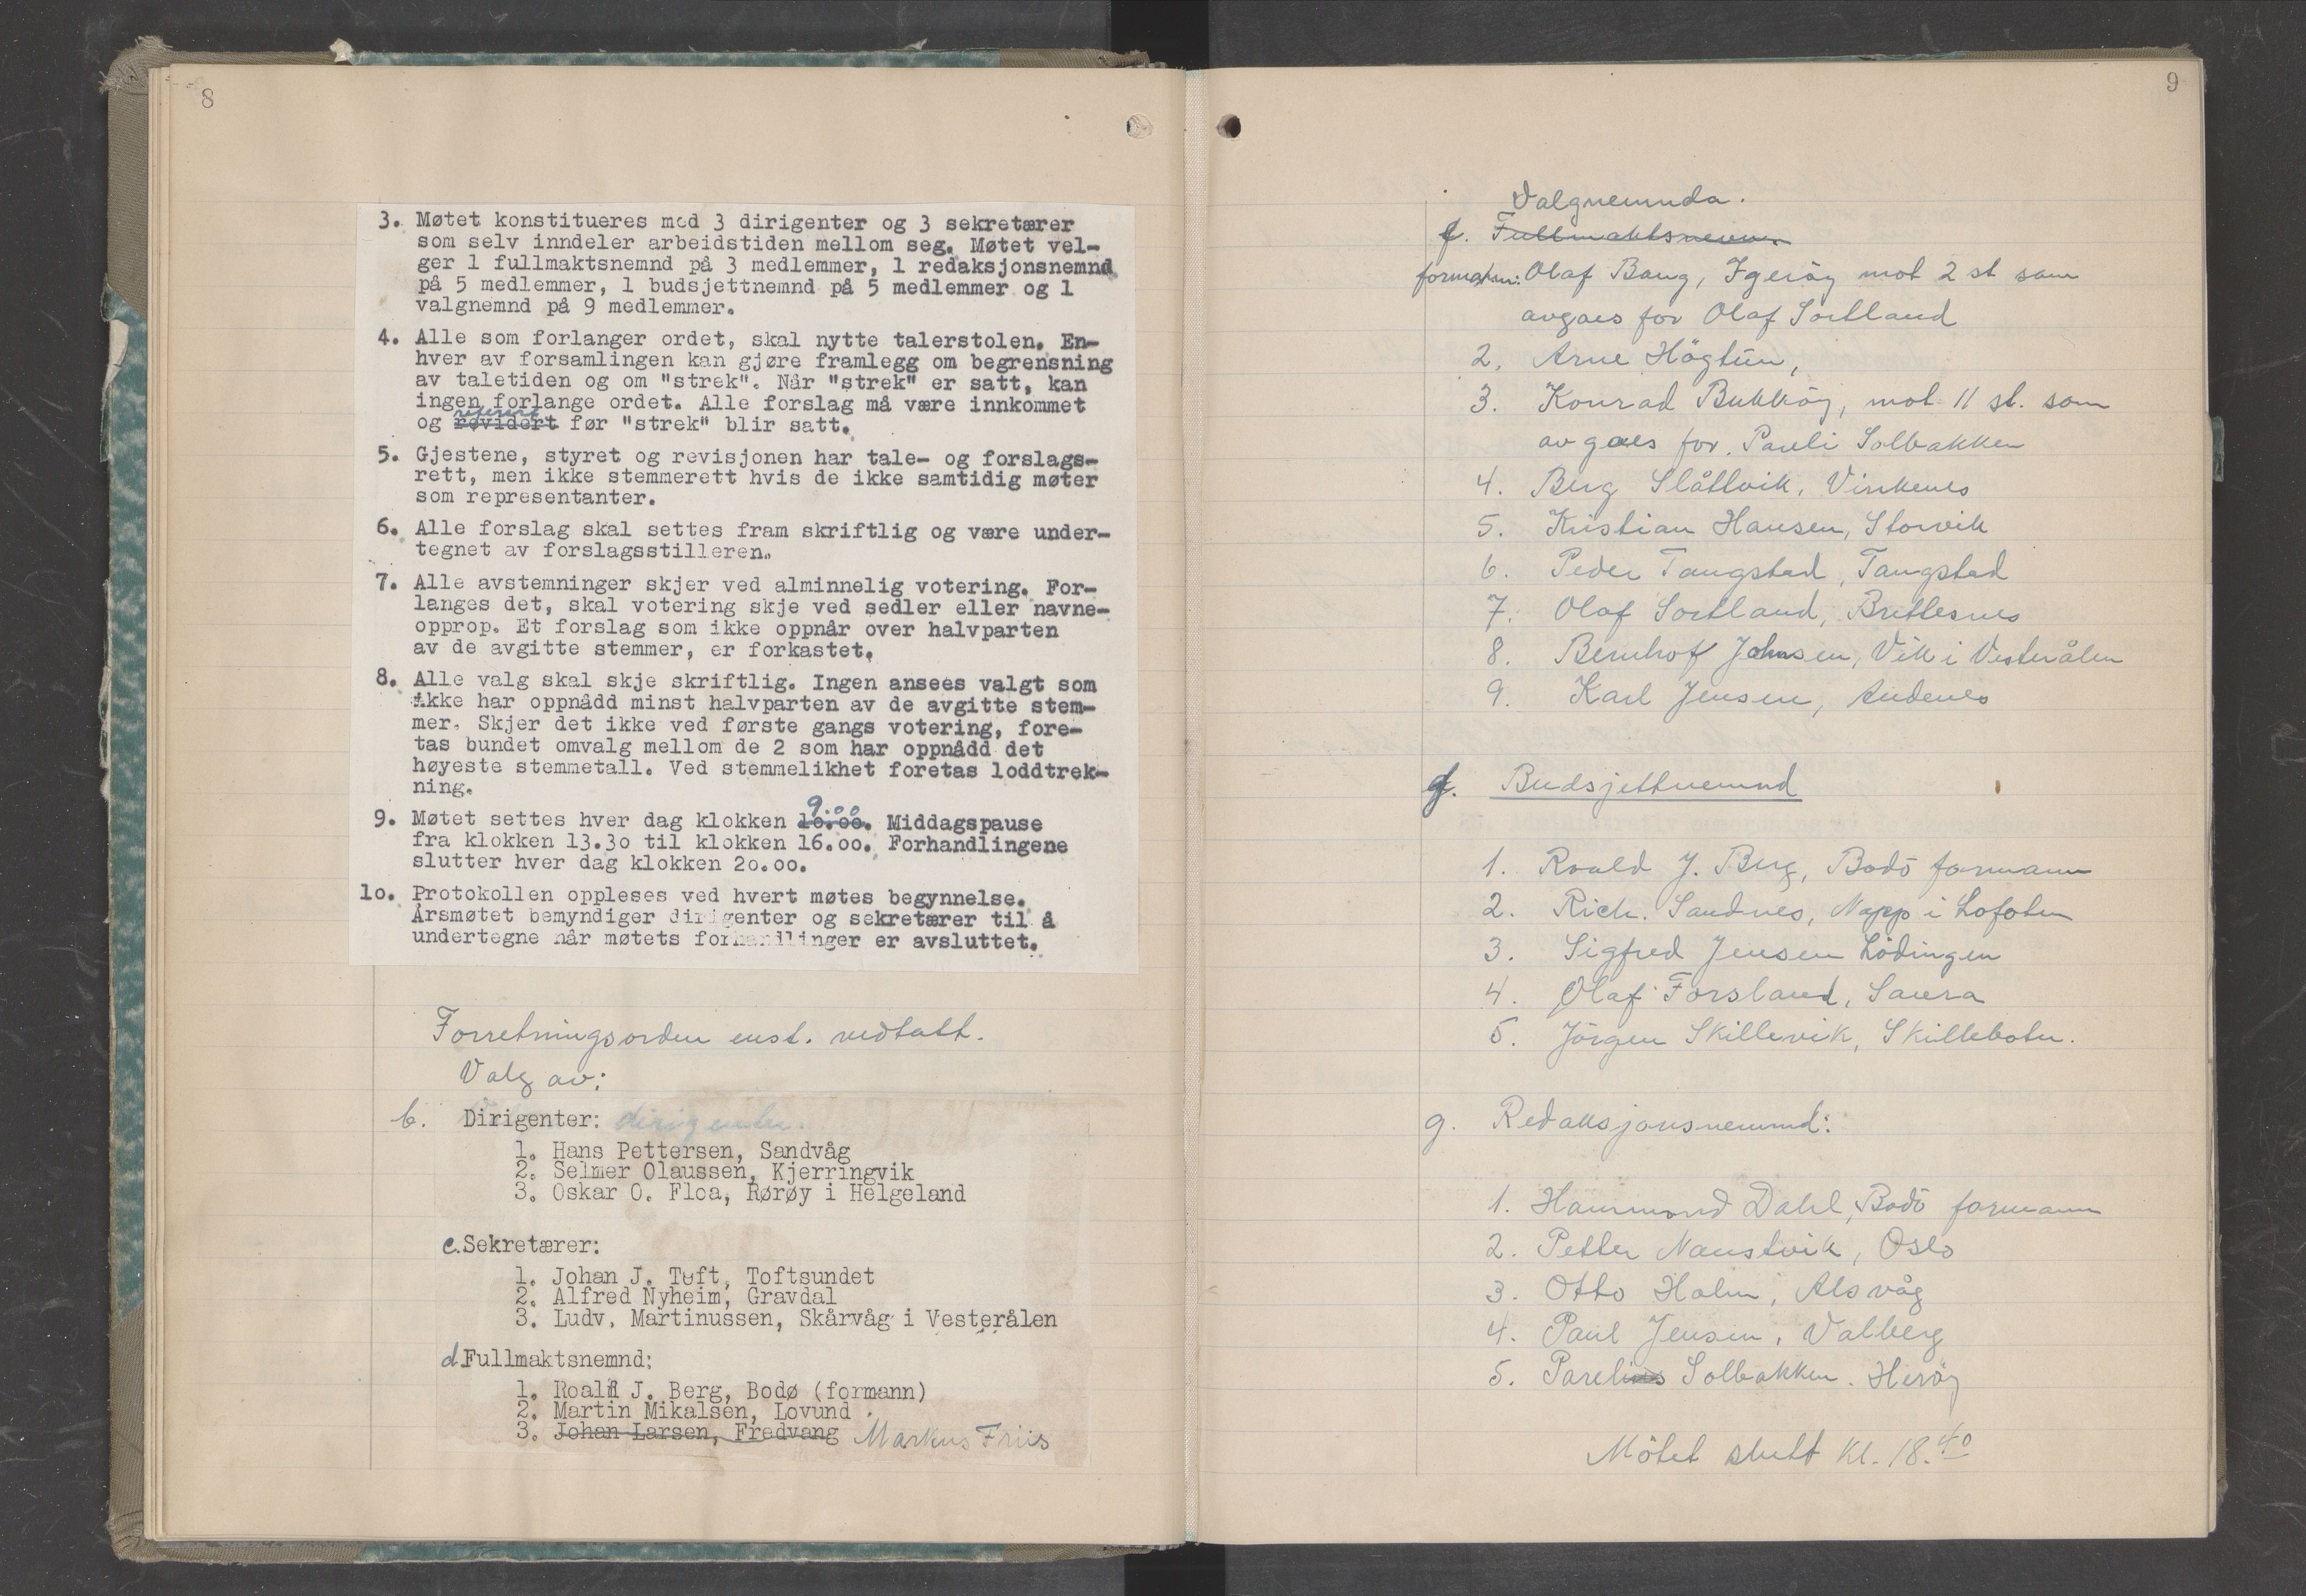 8
3. Møtet konstitueres med 3 dirigenter og 3 sekretærer
som selv inndeler arbeidstiden mellom seg. Møtet vel-
ger 1 fullmaktsnemnd på 3 medlemmer, 1 redaksjonsnemnd
på 5 medlemmer, 1 budsjettnemnd på 5 medlemmer og 1
valgnemnd på 9 medlemmer.
4. Alle som forlanger ordet, skal nytte talerstolen. En-
hver av forsamlingen kan gjøre framlegg om begrensning
av taletiden og om "strek". Når "strek" er satt, kan
ingen forlange ordet. Alle forslag må være innkommet
referert
og revidert før "strek" blir satt.
5. Gjestene, styret og revisjonen har tale- og forslags-
rett, men ikke stemmerett hvis de ikke samtidig møter
som representanter.
6. Alle forslag skal settes fram skriftlig og være under-
tegnet av forslagsstilleren.
7. Alle avstemninger skjer ved alminnelig votering. For-
langes det, skal votering skje ved sedler eller navne-
opprop. Et forslag som ikke oppnår over halvparten
av de avgitte stemmer, er forkastet.
8. Alle valg skal skje skriftlig. Ingen ansees valgt som
ikke har oppnådd minst halvparten av de avgitte stem-
mer. Skjer det ikke ved første gangs votering, fore-
tas bundet omvalg mellom de 2 som har oppnådd det
høyeste stemmetall. Ved stemmelikhet foretas loddtrek-
ning.
9.00
9. Møtet settes hver dag klokken 10.00. Middagspause
fra klokken 13.30 til klokken 16.00. Forhandlingene
slutter hver dag klokken 20.00.
10. Protokollen oppleses ved hvert møtes begynnelse.
Årsmøtet bemyndiger dirigenter og sekretærer til å
undertegne når møtets forhandlinger er avsluttet.
Forretningsorden enst. vedtatt.
Valg av:
b. Dirigenter: dirigenter.
1. Hans Pettersen, Sandvåg
2. Selmer Olaussen, Kjerringvik
3. Oskar O. Floa, Rørøy i Helgeland
c. Sekretærer:
1. Johan J. Toft, Toftsundet
2. Alfred Nyheim, Gravdal
3. Ludv. Martinussen, Skårvåg i Vesterålen
d. Fullmaktsnemnd:
1. Roald J. Berg, Bodø (formann)
2. Martin Mikalsen, Lovund
3. Johan Larsen, Fredvang Markus Friis
9
Valgnemnda.
f. Fullmaktsnemn
formann: Olaf Bang, Igerøy mot 2 st som
avgaes for Olaf Sortland
2. Arne Högtun,
3. Konrad Bukköy, mot 11 st. som
avgaes for. Pareli Solbakken
4. Berg Slåttvik, Vinkenes
5. Kristian Hansen, Storvik
6. Peder Tangstad, Tangstad
7. Olaf Sortland, Brettesnes
8. Bernhof Johnsen, Vik i Vesterålen
9. Karl Jensen, Andenes
f. Budsjettnemnd
1. Roald J. Berg, Bodö formann
2. Rich. Sandnes, Napp i Lofoten
3. Sigfred Jensen Lödingen
4. Olaf Forsland, Saura
5. Jörgen Skillevik, Skillebotn.
g. Redaksjonsnemnd:
1. Hammond Dahl, Bodö formann
2. Petter Naustvik, Oslo
3. Otto Holm, Alsvåg
4. Paul Jensen, Valberg
5. Parelius Solbakken. Heröy
Mötet slutt kl. 18.40